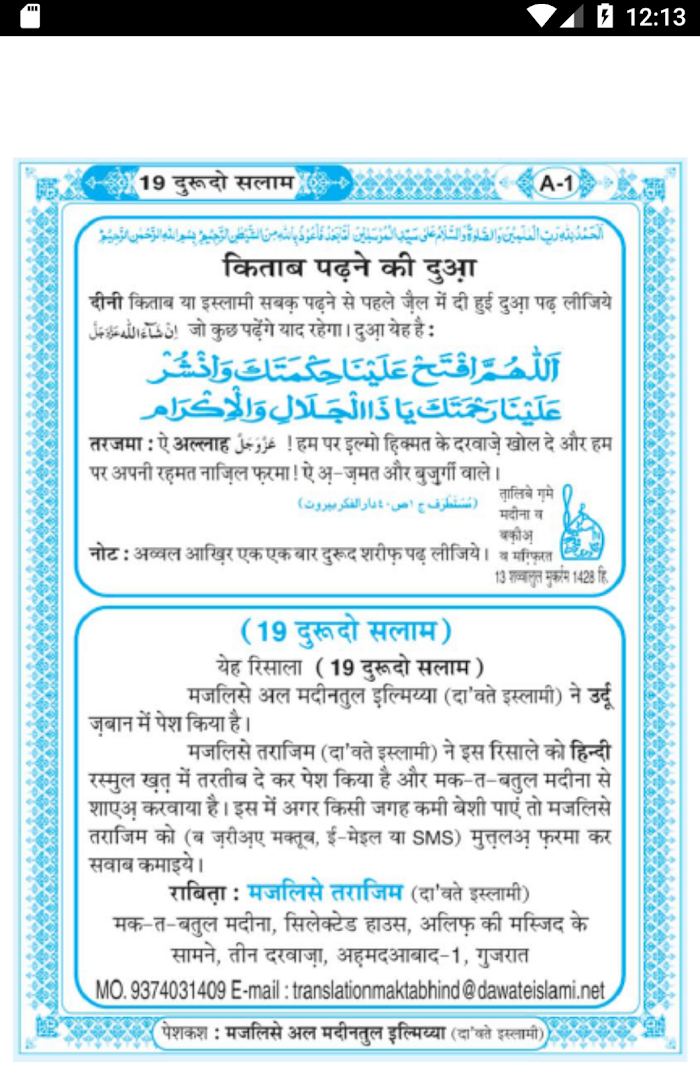 12:13
19 दुरूदो सलाम
A-1
اَلْحَمْدُ لِلّٰهِ رَبِّ الْعٰلَمِيْنَ وَالصَّلٰوةُ وَالسَّلَامُ عَلٰى سَيِّدِ الْمُرْسَلِيْنَ اَمَّا بَعْدُ فَاَعُوْذُ بِاللّٰهِ مِنَ الشَّيْطٰنِ الرَّجِيْمِ بِسْمِ اللّٰهِ الرَّحْمٰنِ الرَّحِيْمِ
किताब पढ़ने की दुआ़
दीनी किताब या इस्लामी सबक़ पढ़ने से पहले जै़ल में दी हुई दुआ़ पढ़ लीजिये
اِنْ شَآءَ اللّٰه عَزَّوَجَلَّ जो कुछ पढ़ेंगे याद रहेगा। दुआ़ येह है :
اَللّٰهُمَّ افْتَحْ عَلَيْنَا حِكْمَتَكَ وَانْشُرْ
عَلَيْنَا رَحْمَتَكَ يَا ذَا الْجَلَالِ وَالْاِكْرَام
तरजमा : ऐ अल्लाह عَزَّوَجَلَّ ! हम पर इल्मो हिक्मत के दरवाज़े खोल दे और हम
पर अपनी रहमत नाज़िल फ़रमा! ऐ अ़-ज़मत और बुज़ुर्गी वाले।
(مُسْتَطْرَف ج ١ ص ٤٠ دار الفكر بيروت)
तालिबे ग़मे
मदीना व
बक़ीअ़
व मग़्फ़िरत
नोट : अव्वल आख़िर एक एक बार दुरूद शरीफ़ पढ़ लीजिये।
13 शव्वालुल मुकर्रम 1428 हि.
(19 दुरूदो सलाम)
येह रिसाला (19 दुरूदो सलाम)
मजलिसे अल मदीनतुल इ़ल्मिय्या (दा'वते इस्लामी) ने उर्दू
ज़बान में पेश किया है।
मजलिसे तराजिम (दा'वते इस्लामी) ने इस रिसाले को हिन्दी
रस्मुल ख़त़ में तरतीब दे कर पेश किया है और मक-त-बतुल मदीना से
शाएअ़ करवाया है। इस में अगर किसी जगह कमी बेशी पाएं तो मजलिसे
तराजिम को (ब ज़रीअ़ए मक्तूब, ई-मेइल या SMS) मुत्त़लअ़ फ़रमा कर
सवाब कमाइये।
राबित़ा : मजलिसे तराजिम (दा'वते इस्लामी)
मक-त-बतुल मदीना, सिलेक्टेड हाउस, अलिफ़ की मस्जिद के
सामने, तीन दरवाज़ा, अह़मदआबाद-1, गुजरात
MO. 9374031409 E-mail : translationmaktabhind@dawateislami.net
पेशकश : मजलिसे अल मदीनतुल इ़ल्मिय्या (दा'वते इस्लामी)